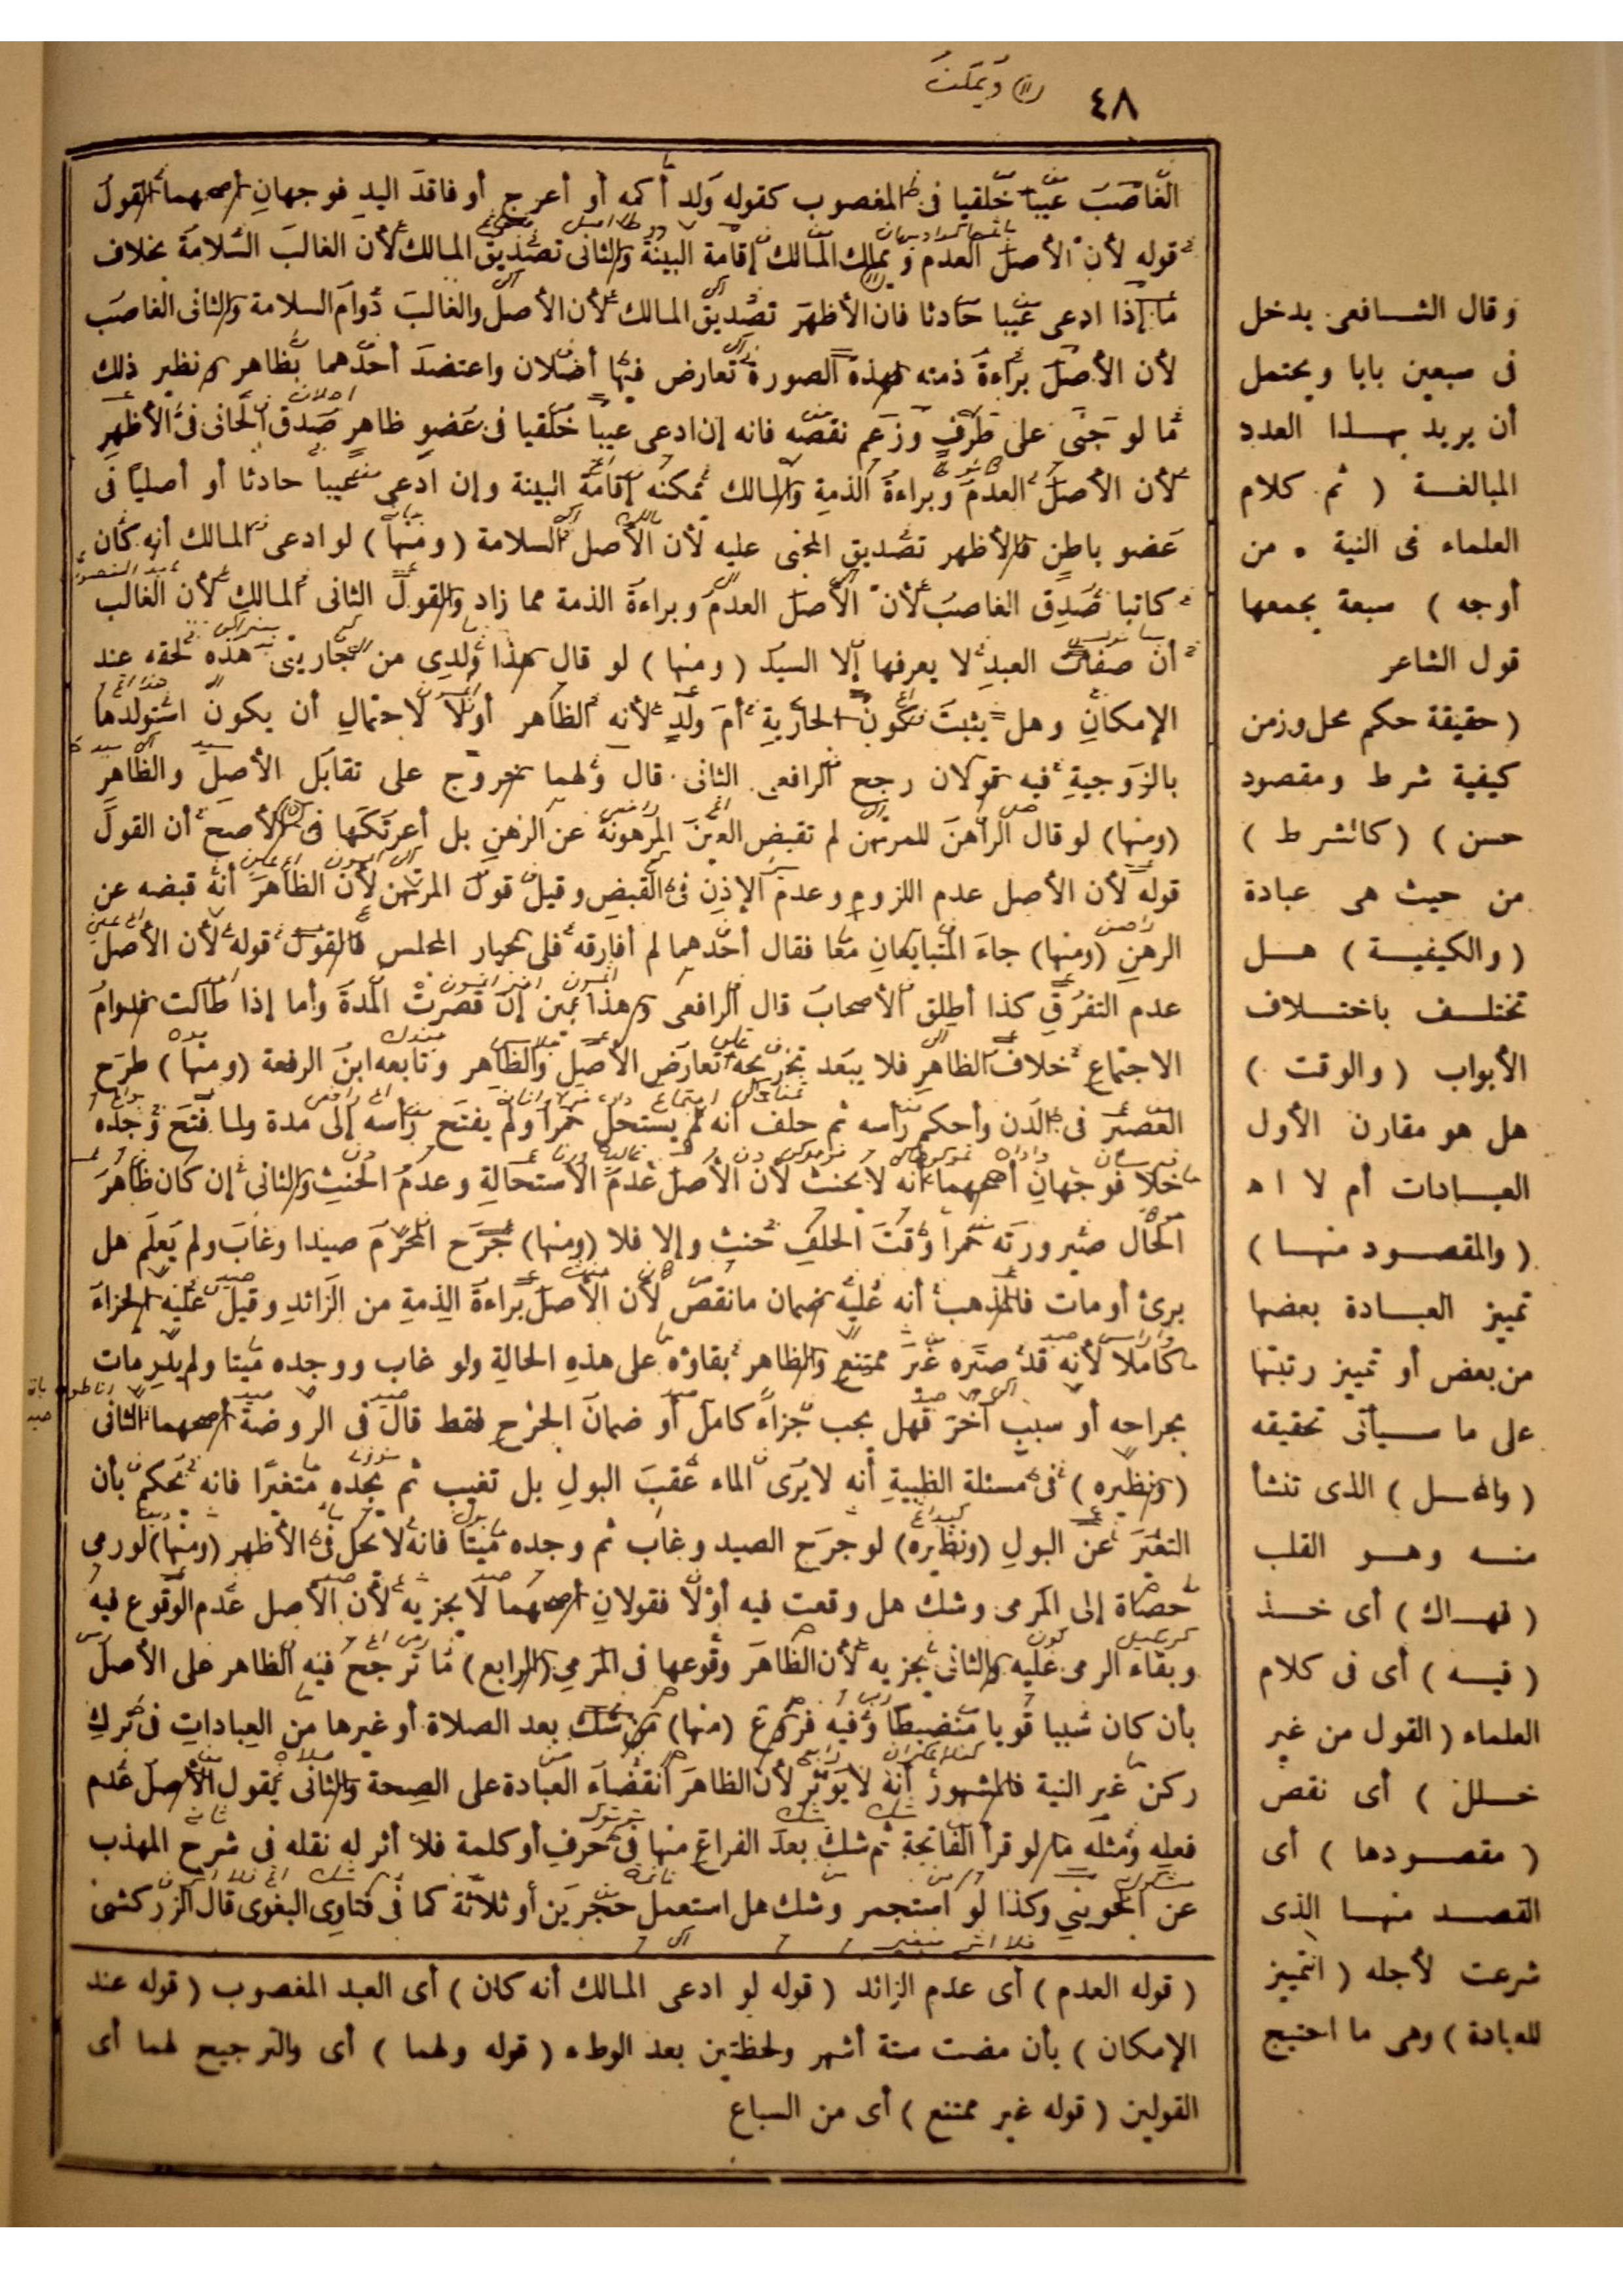 ٤٨
الغاصب عيبا خلقيا فى المغصوب كقوله ولد أكمه أو أعرج أو فاقد اليد فوجهان أصحهما القول
قوله لأن الأصل العدم ويمكن المالك إقامة البينة والثانى تصديق المالك لأن الغالب السلامة بخلاف
ما إذا ادعى عيبا حادثا فان الأظهر تصديق المالك لأن الأصل والغالب دوام السلامة والثانى الغاصب
لأن الأصل براءة ذمته فهذه الصورة تعارض فيها أصلان واعتضد أحدهما بظاهر ونظير ذلك
ما لو جنى على طرف وزعم نقصه فانه إن ادعى عيبا خلقيا فى عضو ظاهر صدق الجانى فى الأظهر
لأن الأصل العدم وبراءة الذمة والمالك يمكنه إقامة البينة وإن ادعى عيبا حادثا أو أصليا فى
عضو باطن فالأظهر تصديق المجنى عليه لأن الأصل السلامة (ومنها) لو ادعى المالك أنه كان
كاتبا صدق الغاصب لأن الأصل العدم وبراءة الذمة مما زاد والقول الثانى المالك لأن الغالب
أن صفات العبد لا يعرفها إلا السيد (ومنها) لو قال هذا ولدى من جاريتى هذه لحقه عند
الإمكان وهل يثبت كون الجارية أم ولد لأنه الظاهر أولا لاحتمال أن يكون استولدها
بالزوجية فيه قولان رجح الرافعى الثانى قال ولهما خروج على تقابل الأصل والظاهر
(ومنها) لو قال الراهن للمرتهن لم تقبض العين المرهونة عن الرهن بل أعرتكها فى الأصح أن القول
قوله لأن الأصل عدم اللزوم وعدم الإذن فى القبض وقيل قول المرتهن لأن الظاهر أنه قبضه عن
الرهن (ومنها) جاء المتبايعان معا فقال أحدهما لم أفارقه فلى خيار المجلس فالقول قوله لأن الأصل
عدم التفرق كذا أطلق الأصحاب قال الرافعى وهذا بين إن قصرت المدة وأما إذا طالت فدوام
الاجتماع خلاف الظاهر فلا يبعد تخريجه تعارض الأصل والظاهر وتابعه ابن الرفعة (ومنها) طرح
العصير فى الدن وأحكم رأسه ثم حلف أنه لم يستحل خمرا ولم يفتح رأسه إلى مدة ولما فتح وجده
خلا فوجهان أصحهما أنه لا يحنث لأن الأصل عدم الاستحالة وعدم الحنث والثانى إن كان ظاهر
الحال صيرورته خمرا وقت الحلف حنث وإلا فلا (ومنها) جرح المحرم صيدا وغاب ولم يعلم هل
برئ أو مات فالمذهب أنه عليه ضمان ما نقص لأن الأصل براءة الذمة من الزائد وقيل عليه الجزاء
كاملا لأنه قد صيره غير ممتنع والظاهر بقاؤه على هذه الحالة ولو غاب ووجده ميتا ولم يدر مات
بجراحه أو سبب آخر فهل يجب جزاء كامل أو ضمان الجرح فقط قال فى الروضة أصحهما الثانى
(ونظيره) فى مسئلة الظبية أنه لا يرى الماء عقب البول بل تغيب ثم يجده متغيرا فانه يحكم بأن
التغير عن البول (ونظيره) لو جرح الصيد وغاب ثم وجده ميتا فانه لا يحل فى الأظهر (ومنها) لو رمى
حصاة إلى المرمى وشك هل وقعت فيه أولا فقولان أصحهما لا يجزيه لأن الأصل عدم الوقوع فيه
وبقاء الرمى عليه والثانى يجزيه لأن الظاهر وقوعها فى المرمى (الرابع) ما ترجح فيه الظاهر على الأصل
بأن كان سببا قويا منضبطا وفيه فروع (منها) من شك بعد الصلاة أو غيرها من العبادات فى ترك
ركن غير النية فالمشهور أنه لا يؤثر لأن الظاهر انقضاء العبادة على الصحة والثانى يقول الأصل عدم
فعله ومثله ما لو قرأ الفاتحة ثم شك بعد الفراغ منها فى حرف أو كلمة فلا أثر له نقله فى شرح المهذب
عن الجوينى وكذا لو استجمر وشك هل استعمل حجرين أو ثلاثة كما فى فتاوى البغوى قال الزركشى
(قوله العدم) أى عدم الزائد (قوله لو ادعى المالك أنه كان) أى العبد المغصوب (قوله عند
الإمكان) بأن مضت ستة أشهر ولحظتين بعد الوطء (قوله ولهما) أى والترجيح لهما أى
القولين (قوله غير ممتنع) أى من السباع
وقال الشافعى يدخل
فى سبعين بابا ويحتمل
أن يريد بهذا العدد
المبالغة (ثم كلام
العلماء فى النية . من
أوجه) سبعة يجمعها
قول الشاعر
(حقيقة حكم محل وزمن
كيفية شرط ومقصود
حسن) (كالشرط)
من حيث هى عبادة
(والكيفية) هل
تختلف باختلاف
الأبواب (والوقت)
هل هو مقارن الأول
العبادات أم لا اه
(والمقصود منها)
تمييز العبادة بعضها
من بعض أو تمييز رتبتها
على ما سيأتى تحقيقه
(والمحل) الذى تنشأ
منه وهو القلب
(فهاك) أى خذ
(فيه) أى فى كلام
العلماء (القول من غير
خلل) أى نقص
(مقصودها) أى
القصد منها الذى
شرعت لأجله (التمييز
للعبادة) وهى ما احتيج